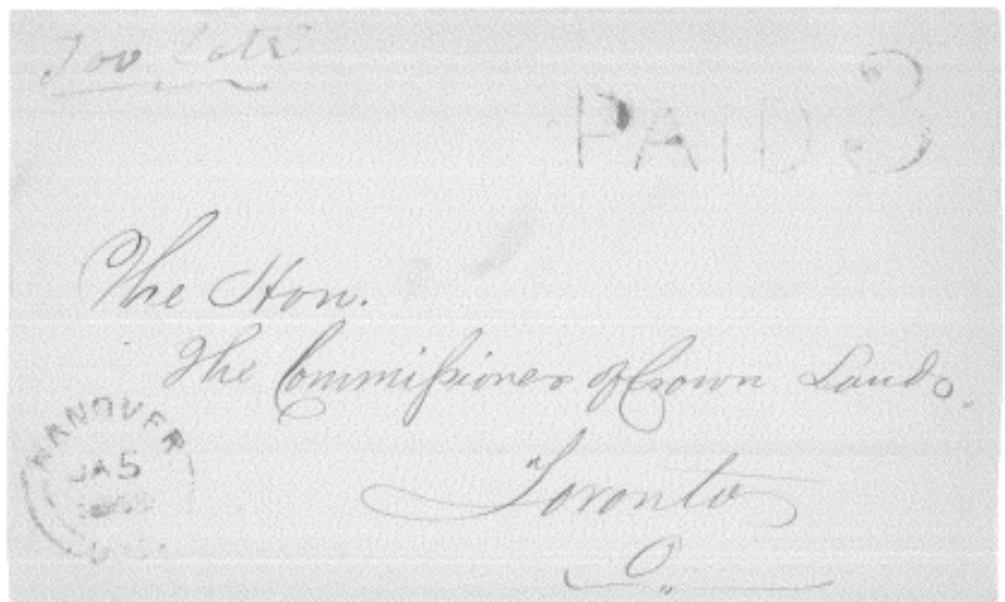 Too Late
PAID 3
The Hon.
The Commissioner of Crown Lands.
Toronto
HANOVER
JA 5